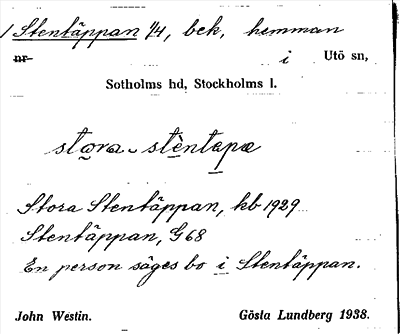 1 Stentäppan 1/4, bek, hemman
nr i Utö sn,
Sotholms hd, Stockholms l.
stora - stèntapa
Stora Stentäppan, kb 1929
Stentäppan, G 68
En person säges bo i Stentäppan.
John Westin. Gösta Lundberg 1938.